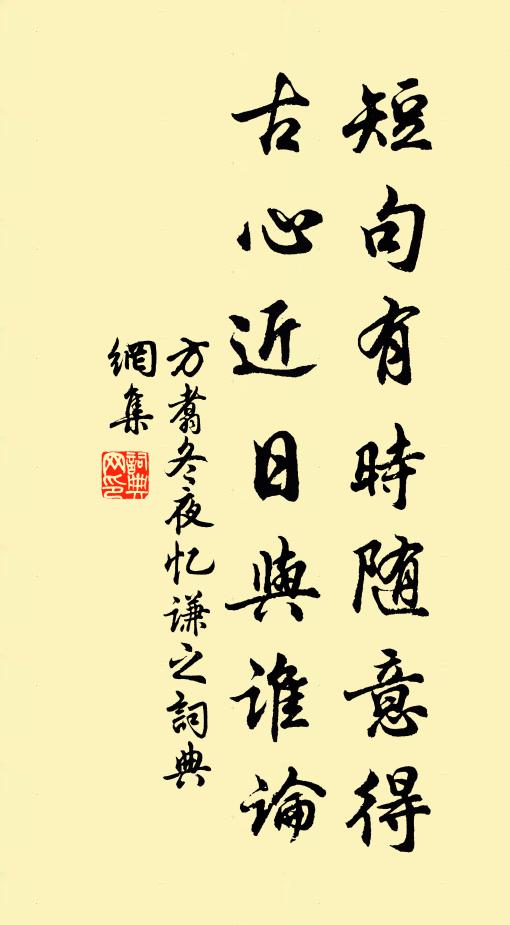 短句有時随意得
古心近日與誰論
方翥冬夜忆谦之詞典
網集
詞典網印